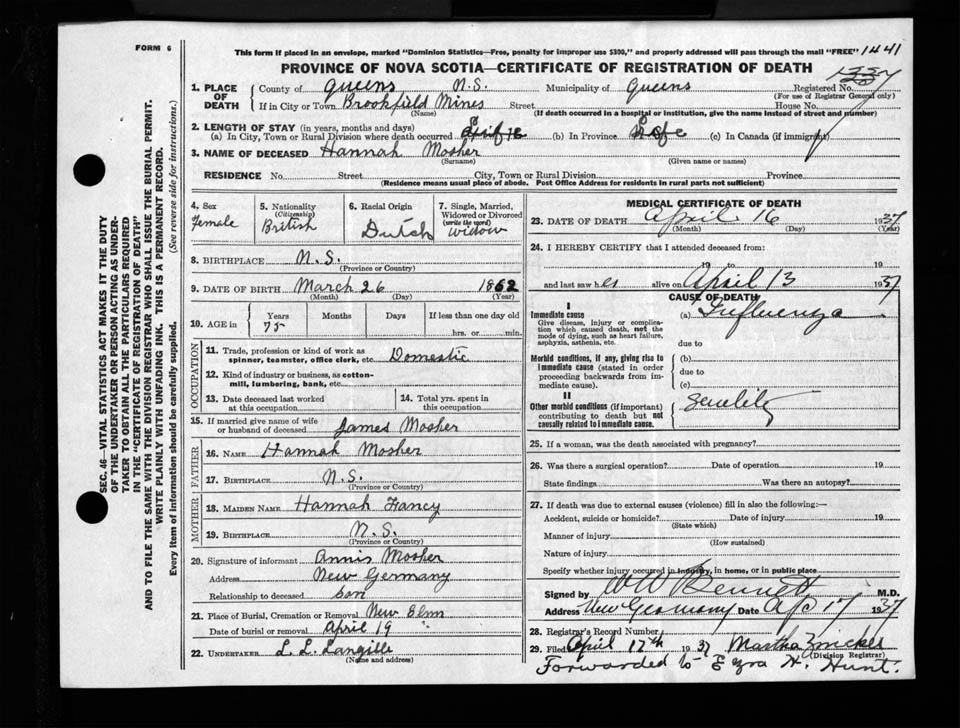 FORM 6
This form if placed in an envelope, marked "Dominion Statistics—Free, penalty for improper use $300," and properly addressed will pass through the mail "FREE" 1441
PROVINCE OF NOVA SCOTIA—CERTIFICATE OF REGISTRATION OF DEATH
1. PLACE OF DEATH
County of Queens N.S. Municipality of Queens Registered No.
(For use of Registrar General only)
If in City or Town Brookfield Mines Street House No.
(Name) (If death occurred in a hospital or institution, give the name instead of street and number)
2. LENGTH OF STAY (in years, months and days)
(a) In City, Town or Rural Division where death occurred Life (b) In Province Life (c) In Canada (if immigrant)
3. NAME OF DECEASED Hannah Mosher
(Surname) (Given name or names)
RESIDENCE No. Street City, Town or Rural Division Province
(Residence means usual place of abode. Post Office Address for residents in rural parts not sufficient)
4. Sex
Female
5. Nationality
(Citizenship)
British
6. Racial Origin
Dutch
7. Single, Married, Widowed or Divorced
(write the word)
widow
8. BIRTHPLACE N.S.
(Province or Country)
9. DATE OF BIRTH March 26 1862
(Month) (Day) (Year)
10. AGE in Years Months Days If less than one day old
75 hrs. or min.
OCCUPATION
11. Trade, profession or kind of work as
spinner, teamster, office clerk, etc. Domestic
12. Kind of industry or business, as cotton-
mill, lumbering, bank, etc.
13. Date deceased last worked
at this occupation
14. Total yrs. spent in
this occupation
15. If married give name of wife
or husband of deceased James Mosher
FATHER
16. NAME Hannah Mosher
17. BIRTHPLACE N.S.
(Province or Country)
MOTHER
18. MAIDEN NAME Hannah Fancy
19. BIRTHPLACE N.S.
(Province or Country)
20. Signature of informant Annis Mosher
Address New Germany
Relationship to deceased Son
21. Place of Burial, Cremation or Removal New Elm
Date of burial or removal April 19
22. UNDERTAKER L. L. Langille
(Name and address)
MEDICAL CERTIFICATE OF DEATH
23. DATE OF DEATH April 16 1937
(Month) (Day) (Year)
24. I HEREBY CERTIFY that I attended deceased from:
19 to 19
and last saw her alive on April 13 1937
CAUSE OF DEATH
I
Immediate cause
Give disease, injury or complica-
tion which caused death, not the
mode of dying, such as heart failure,
asphyxia, asthenia, etc.
(a) Influenza
due to
Morbid conditions, if any, giving rise to
immediate cause (stated in order
proceeding backwards from im-
mediate cause).
(b)
due to
(c)
II
Other morbid conditions (if important)
contributing to death but not
causally related to immediate cause.
Senility
25. If a woman, was the death associated with pregnancy?
26. Was there a surgical operation? Date of operation 19
State findings Was there an autopsy?
27. If death was due to external causes (violence) fill in also the following:—
Accident, suicide or homicide? Date of injury 19
(State which)
Manner of injury
(How sustained)
Nature of injury
Specify whether injury occurred in industry, in home, or in public place
Signed by W W Bennett M.D.
Address New Germany Date Ap 17 1937
28. Registrar's Record Number
29. Filed April 17th 1937 Martha
(Division Registrar)
Forwarded to Ezra H. Hunt.
SEC. 46—VITAL STATISTICS ACT MAKES IT THE DUTY
OF THE UNDERTAKER OR PERSON ACTING AS UNDER-
TAKER TO OBTAIN ALL THE PARTICULARS REQUIRED
IN THE "CERTIFICATE OF REGISTRATION OF DEATH"
AND TO FILE THE SAME WITH THE DIVISION REGISTRAR WHO SHALL ISSUE THE BURIAL PERMIT.
WRITE PLAINLY WITH UNFADING INK. THIS IS A PERMANENT RECORD.
Every item of information should be carefully supplied. (See reverse side for instructions.)